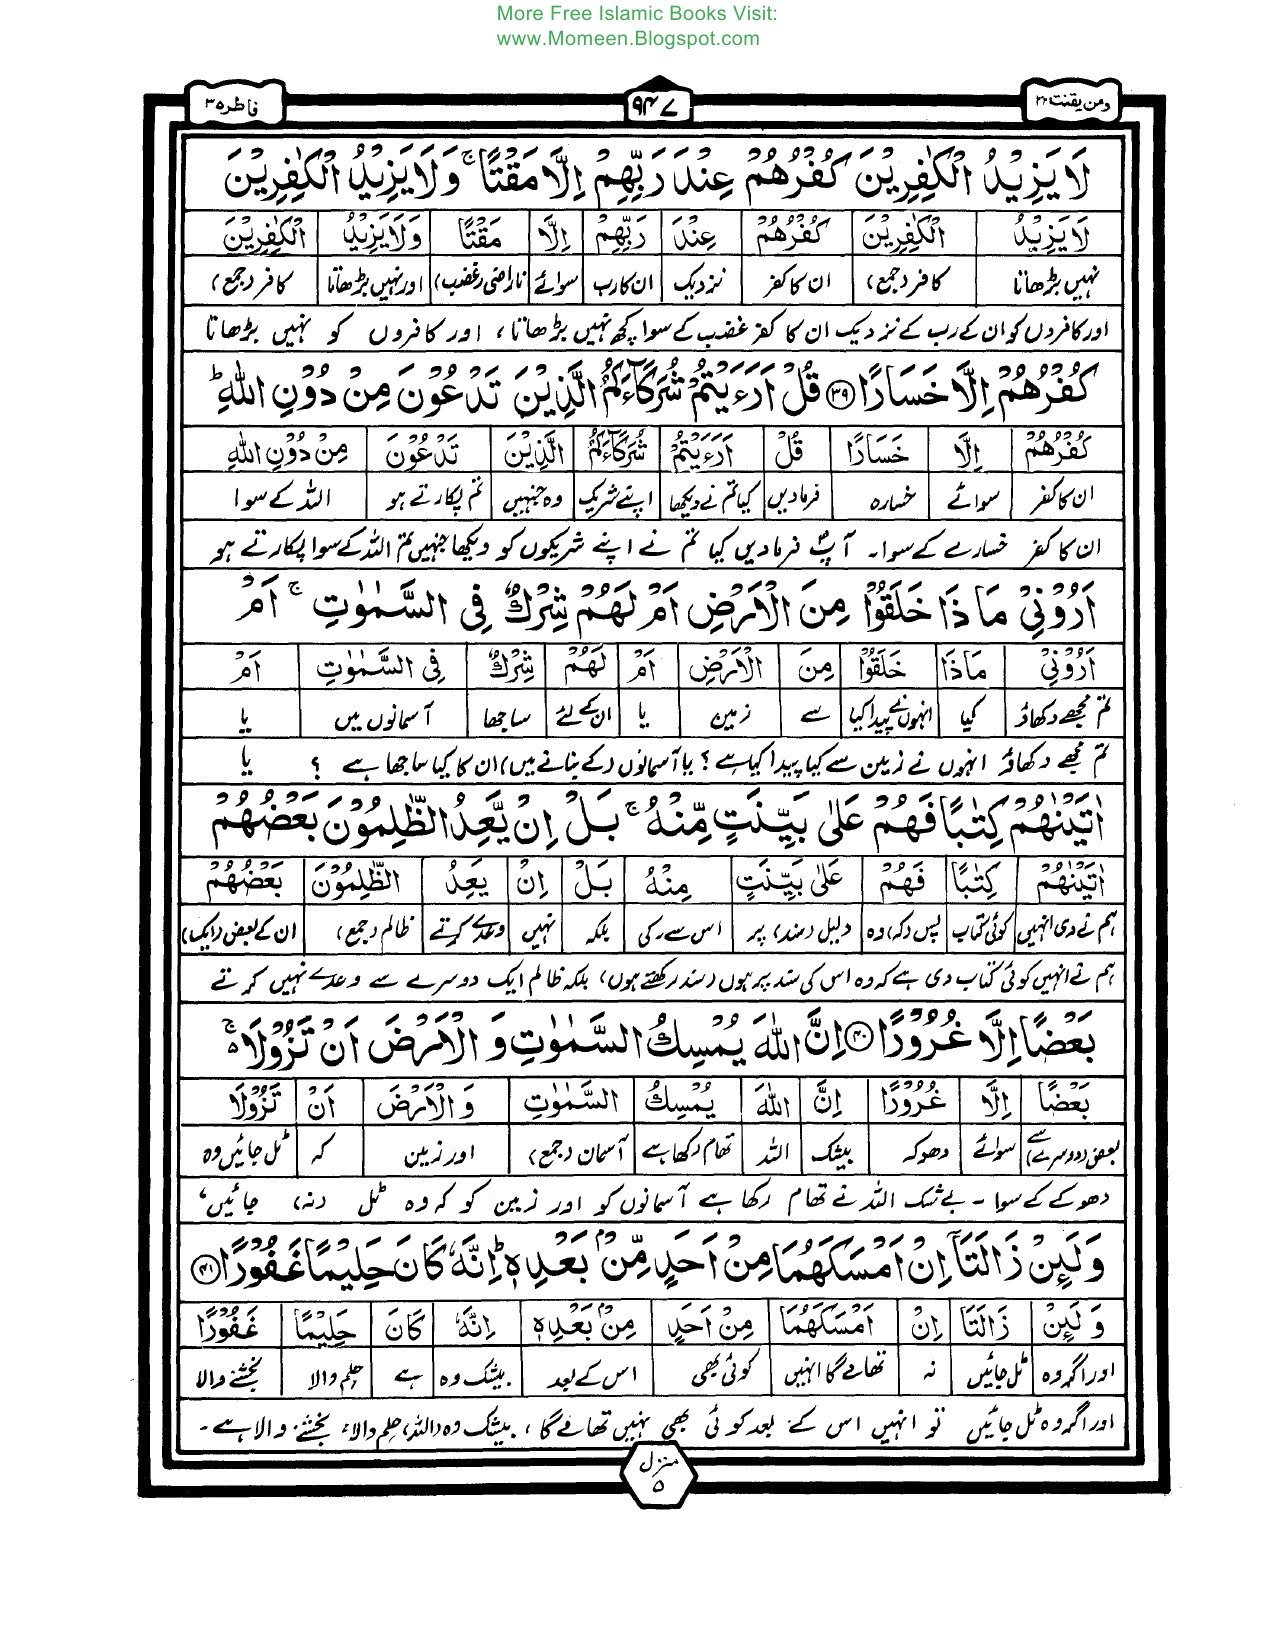 More Free Islamic Books Visit:
www.Momeen.Blogspot.com
ومن یقنت ۲۲ ۹۴۷ فاطر ۳۵
لَا يَزِيْدُ الْكٰفِرِيْنَ كُفْرُهُمْ عِنْدَ رَبِّهِمْ اِلَّا مَقْتًا ۚ وَلَا يَزِيْدُ الْكٰفِرِيْنَ
لَا يَزِيْدُ الْكٰفِرِيْنَ كُفْرُهُمْ عِنْدَ رَبِّهِمْ اِلَّا مَقْتًا وَلَا يَزِيْدُ الْكٰفِرِيْنَ
نہیں بڑھاتا کافر (جمع) ان کا کفر نزدیک ان کا رب سوائے ناراضی (غضب) اور نہیں بڑھاتا کافر (جمع)
اور کافروں کو ان کے رب کے نزدیک ان کا کفر غضب کے سوا کچھ نہیں بڑھاتا، اور کافروں کو نہیں بڑھاتا
كُفْرُهُمْ اِلَّا خَسَارًا ۳۹ قُلْ اَرَءَيْتُمْ شُرَكَآءَكُمُ الَّذِيْنَ تَدْعُوْنَ مِنْ دُوْنِ اللّٰهِ ؕ
كُفْرُهُمْ اِلَّا خَسَارًا قُلْ اَرَءَيْتُمْ شُرَكَآءَكُمُ الَّذِيْنَ تَدْعُوْنَ مِنْ دُوْنِ اللّٰهِ
ان کا کفر سوائے خسارہ فرما دیں کیا تم نے دیکھا اپنے شریک وہ جنہیں تم پکارتے ہو اللہ کے سوا
ان کا کفر خسارے کے سوا۔ آپؐ فرما دیں کیا تم نے اپنے شریکوں کو دیکھا جنہیں تم اللہ کے سوا پکارتے ہو
اَرُوْنِيْ مَاذَا خَلَقُوْا مِنَ الْاَرْضِ اَمْ لَهُمْ شِرْكٌ فِى السَّمٰوٰتِ ۚ اَمْ
اَرُوْنِيْ مَاذَا خَلَقُوْا مِنَ الْاَرْضِ اَمْ لَهُمْ شِرْكٌ فِى السَّمٰوٰتِ اَمْ
تم مجھے دکھاؤ کیا انہوں نے پیدا کیا سے زمین یا ان کے لئے ساجھا آسمانوں میں یا
تم مجھے دکھاؤ انہوں نے زمین سے کیا پیدا کیا ہے؟ یا آسمانوں (کے بنانے میں) ان کا کیا ساجھا ہے ؟ یا
اٰتَيْنٰهُمْ كِتٰبًا فَهُمْ عَلٰى بَيِّنَتٍ مِّنْهُ ۚ بَلْ اِنْ يَّعِدُ الظّٰلِمُوْنَ بَعْضُهُمْ
اٰتَيْنٰهُمْ كِتٰبًا فَهُمْ عَلٰى بَيِّنَتٍ مِنْهُ بَلْ اِنْ يَعِدُ الظّٰلِمُوْنَ بَعْضُهُمْ
ہم نے دی انہیں کوئی کتاب پس (کہ) وہ دلیل (سند) پر اس سے (کی) بلکہ نہیں وعدے کرتے ظالم (جمع) ان کے بعض (ایک)
ہم نے انہیں کوئی کتاب دی ہے کہ وہ اس کی سند پر ہوں (سند رکھتے ہوں) بلکہ ظالم ایک دوسرے سے وعدے نہیں کرتے
بَعْضًا اِلَّا غُرُوْرًا ۴۰ اِنَّ اللّٰهَ يُمْسِكُ السَّمٰوٰتِ وَ الْاَرْضَ اَنْ تَزُوْلَا ۚ
بَعْضًا اِلَّا غُرُوْرًا اِنَّ اللّٰهَ يُمْسِكُ السَّمٰوٰتِ وَ الْاَرْضَ اَنْ تَزُوْلَا
بعض (دوسرے) سے سوائے دھوکہ بیشک اللہ تھام رکھا ہے آسمان (جمع) اور زمین کہ ٹل جائیں وہ
دھوکے کے سوا۔ بے شک اللہ نے تھام رکھا ہے آسمانوں کو اور زمین کو کہ وہ ٹل (نہ) جائیں،
وَ لَئِنْ زَالَتَآ اِنْ اَمْسَكَهُمَا مِنْ اَحَدٍ مِّنْۢ بَعْدِهٖ ؕ اِنَّهٗ كَانَ حَلِيْمًا غَفُوْرًا ۴۱
وَ لَئِنْ زَالَتَا اِنْ اَمْسَكَهُمَا مِنْ اَحَدٍ مِنْۢ بَعْدِهٖ اِنَّهٗ كَانَ حَلِيْمًا غَفُوْرًا
اور اگر وہ ٹل جائیں نہ تھامے گا انہیں کوئی بھی اس کے بعد بیشک وہ ہے حلم والا بخشنے والا
اور اگر وہ ٹل جائیں تو انہیں اس کے بعد کوئی بھی نہیں تھامے گا، بیشک وہ (اللہ) حلم والا، بخشنے والا ہے۔
منزل
۵